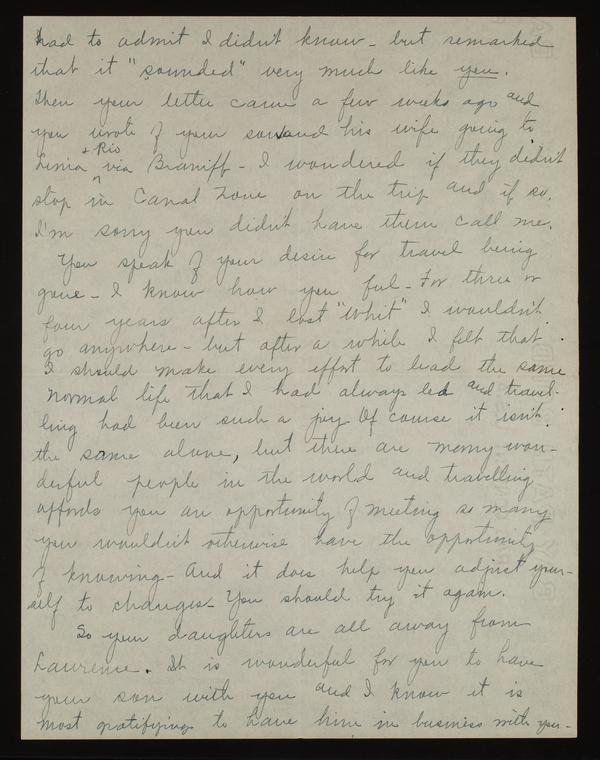 had to admit I didn't know - but remarked
that it "sounded" very much like you.
Then your letter came a few weeks ago and
you wrote of your son and his wife going to
Lima + Rio via Braniff - I wondered if they didn't
stop in Canal Zone on the trip and if so,
I'm sorry you didn't have them call me.
You speak of your desire for travel being
gone - I know how you feel - For three or
four years after I lost "Whit" I wouldn't
go anywhere - but after a while I felt that
I should make every effort to lead the same
normal life that I had always led and travel-
ling had been such a joy. Of course it isn't
the same alone, but there are many won-
derful people in the world and travelling
affords you an opportunity of meeting so many
you wouldn't otherwise have the opportunity
of knowing - And it does help you adjust your-
self to changes - You should try it again.
So your daughters are all away from
Lawrence. It is wonderful for you to have
your son with you and I know it is
most gratifying to have him in business with you -